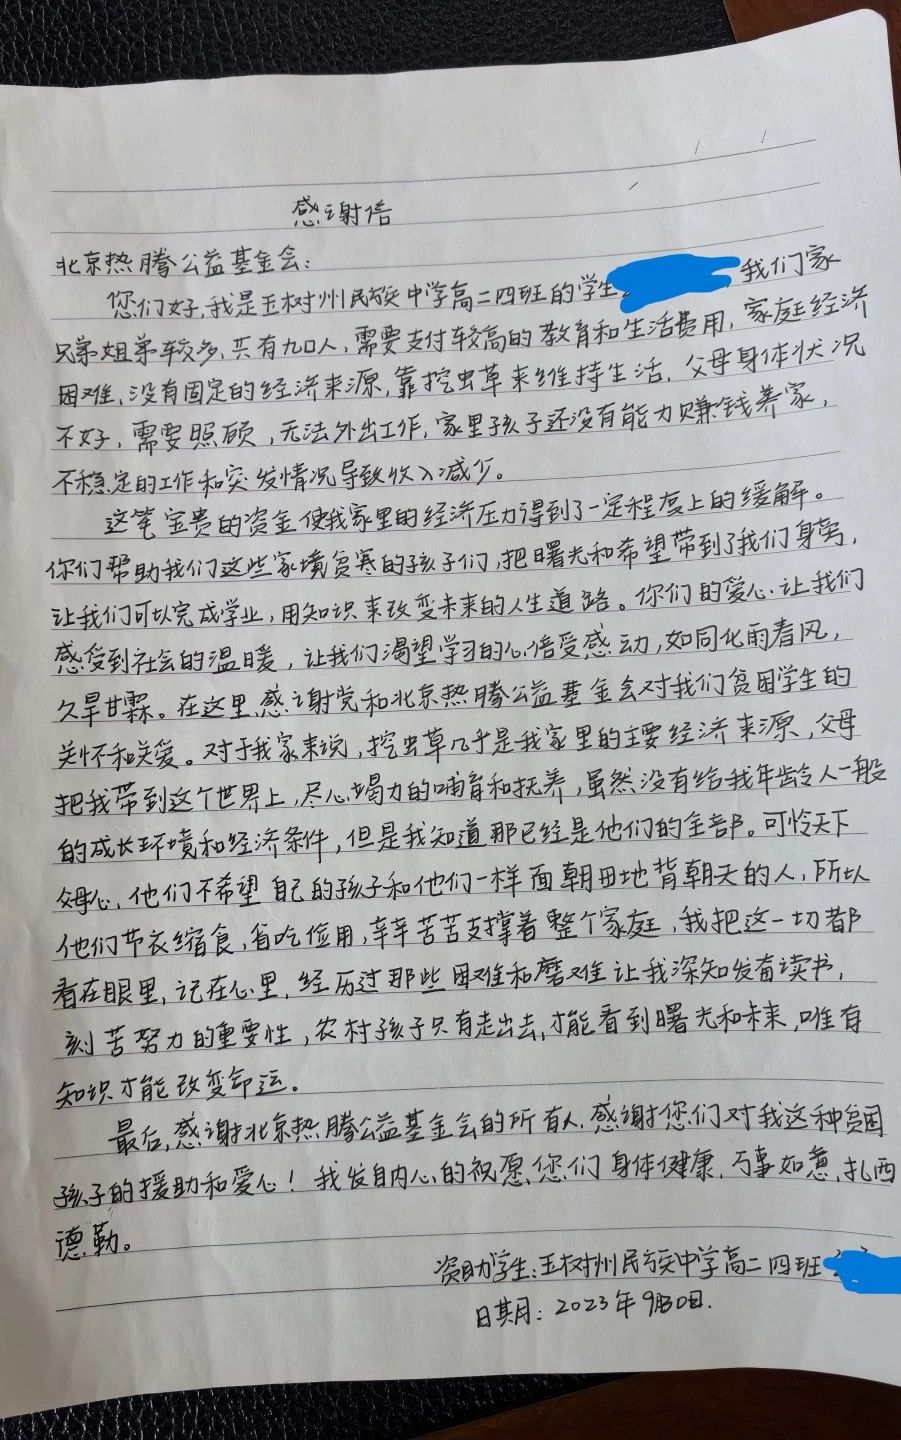 感谢信
北京热腾公益基金会：
您们好，我是玉树州民族中学高二四班的学生 我们家
兄弟姐弟较多，共有九口人，需要支付较高的教育和生活费用，家庭经济
困难，没有固定的经济来源，靠挖虫草来维持生活，父母身体状况
不好，需要照顾，无法外出工作，家里孩子还没有能力赚钱养家，
不稳定的工作和突发情况导致收入减少。
这笔宝贵的资金使我家里的经济压力得到了一定程度上的缓解。
你们帮助我们这些家境贫寒的孩子们，把曙光和希望带到了我们身旁，
让我们可以完成学业，用知识来改变未来的人生道路。你们的爱心让我们
感受到社会的温暖，让我们渴望学习的心倍受感动，如同化雨春风，
久旱甘霖。在这里，感谢党和北京热腾公益基金会对我们贫困学生的
关怀和关爱。对于我家来说，挖虫草几乎是我家里的主要经济来源，父母
把我带到这个世界上，尽心竭力的哺育和抚养，虽然没有给我年龄人一般
的成长环境和经济条件，但是我知道那已经是他们的全部。可怜天下
父母心，他们不希望自己的孩子和他们一样面朝田地背朝天的人，所以
他们节衣缩食，省吃俭用，辛辛苦苦支撑着整个家庭，我把这一切都
看在眼里，记在心里，经历过那些困难和磨难让我深知发奋读书，
刻苦努力的重要性，农村孩子只有走出去，才能看到曙光和未来，唯有
知识才能改变命运。
最后，感谢北京热腾公益基金会的所有人，感谢您们对我这种贫困
孩子的援助和爱心！我发自内心的祝愿您们身体健康，万事如意，扎西
德勒。
资助学生：玉树州民族中学高二四班
日期：2023年9月30日.